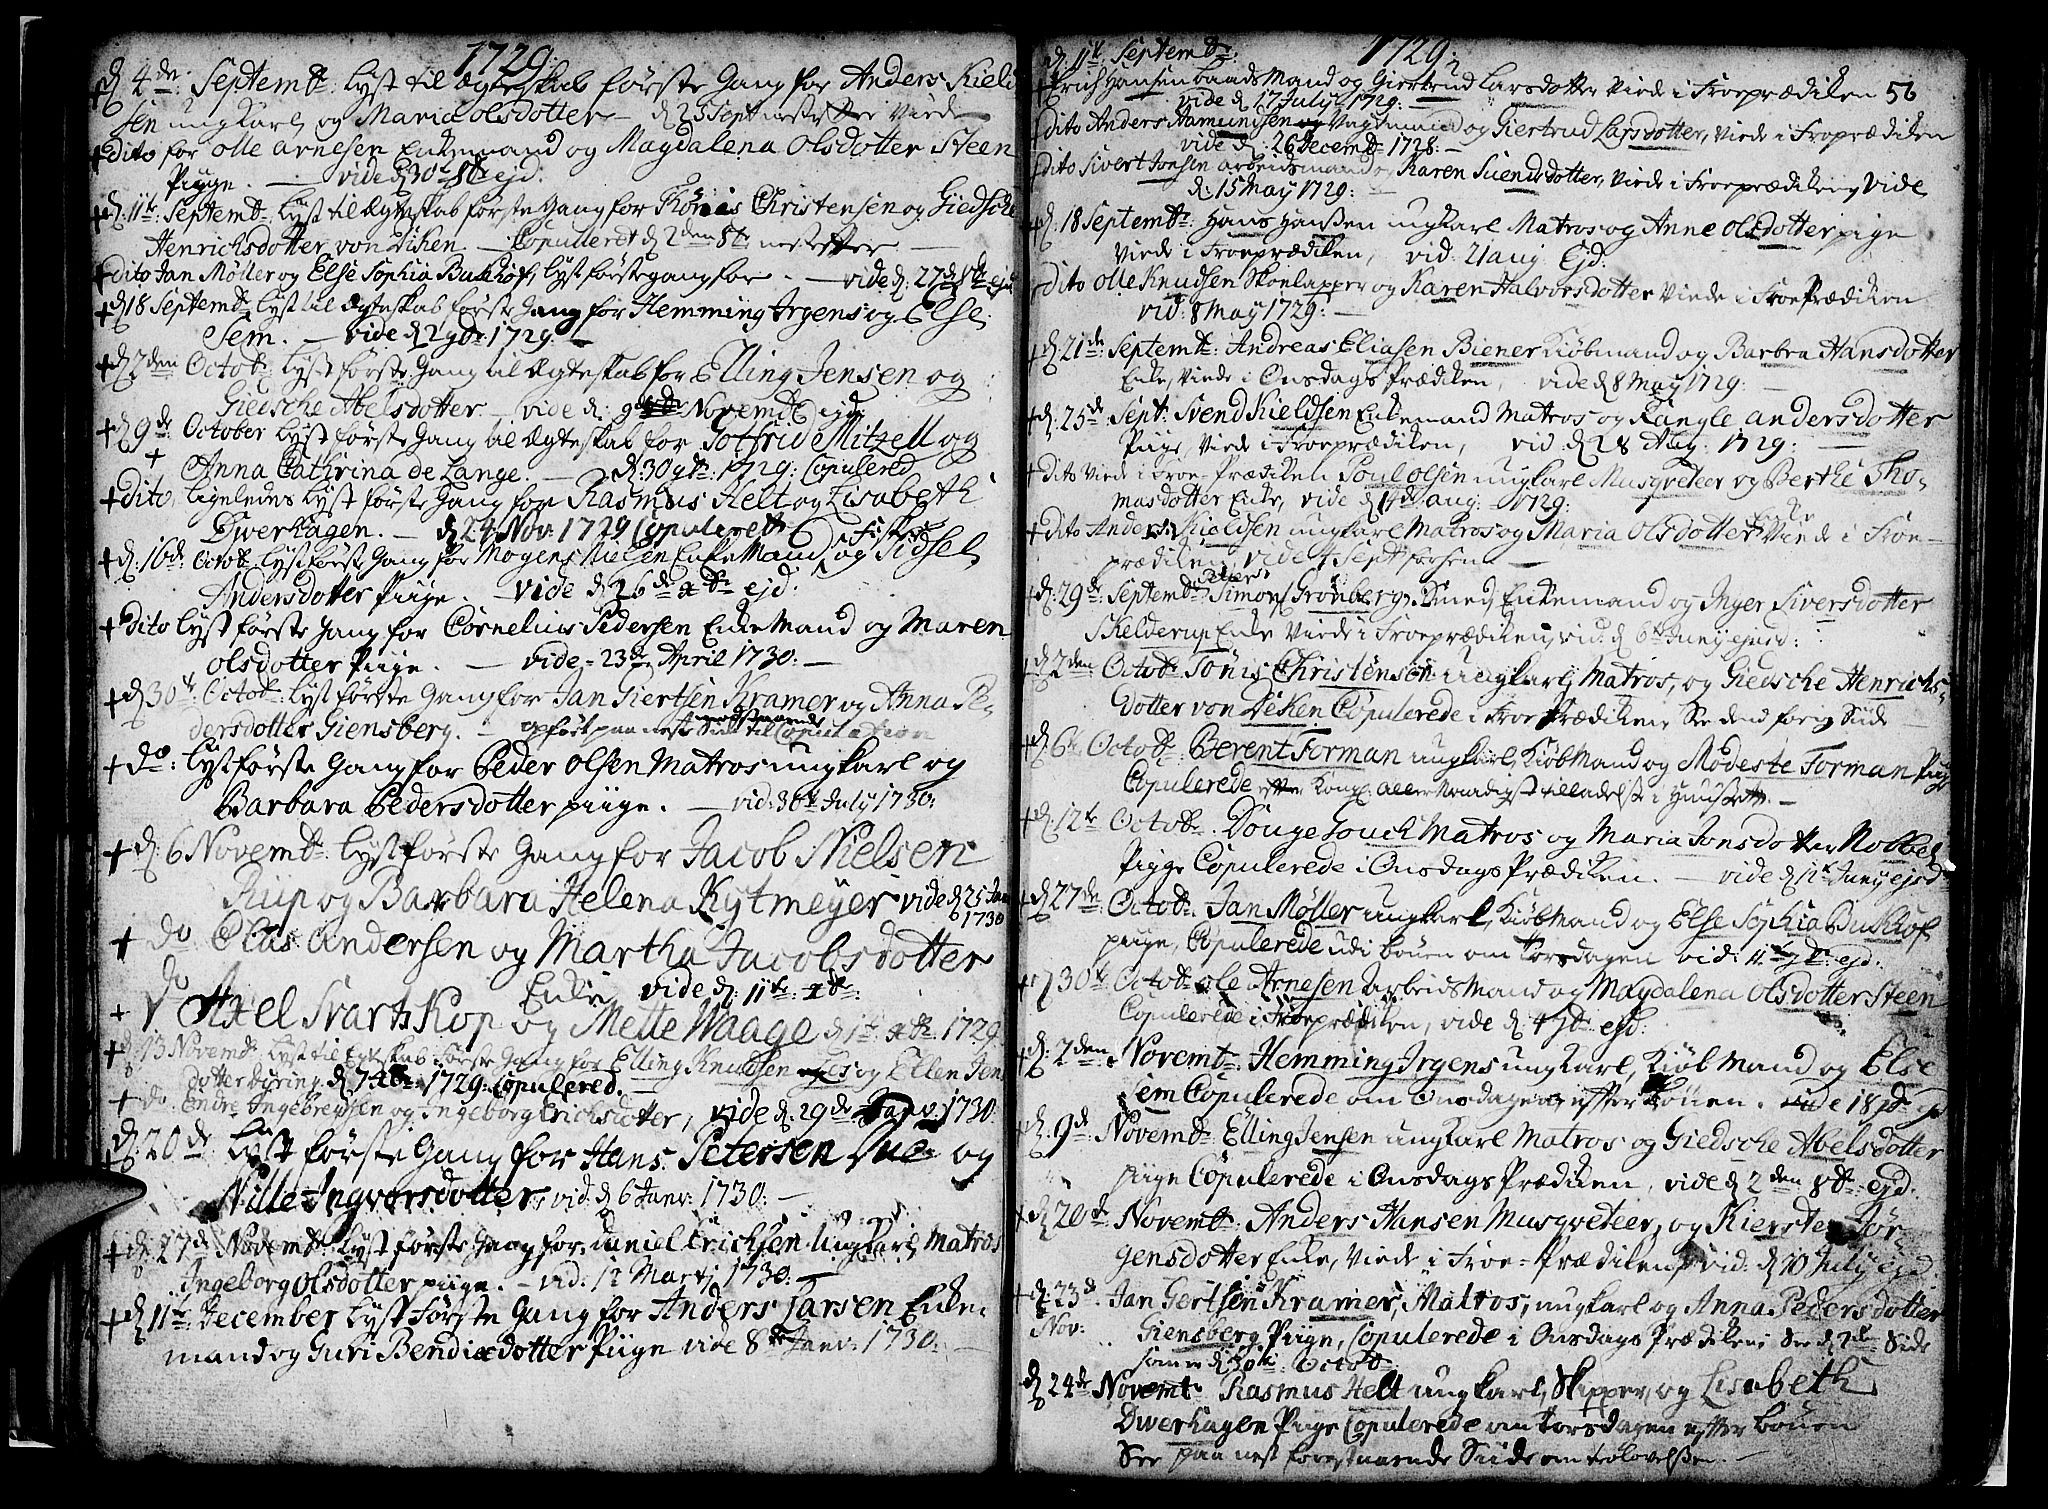 1729.
d 4de: Septembr: lyst til Ægteskab første Gang for Anders Kield
sen ungkarl og Maria Olsdotter — d 25 Sept nest: See Viede
+ dito for Olle Arnesen Enkemand og Magdalena Olsdotter Steen
Piige. — vide d 30t 8br ejd:
+ d. 11te: Septembr: lyst til Ægteskab første Gang for Tönis Christensen og Giedsche
Henrichsdotter von Diken. — Copuleret d 2den 8br nest efter —
+ dito Jan Møller og Else Sophia Bukhof, lyst første gang for. — vide d: 27d 8br ejd
+ d 18 Septembr. lyst til Ægteskab første Gang for Hemming Irgens og Else
Sem. — vide d 2 9br 1729. —
+ d 2den Octobr: lyst første Gang til Ægteskab for Elling Jensen og
Giedsche Abelsdotter — vide d: 9de Novembr ejd:
+ d 9de: October lyst første Gang til Ægteskab for Sotfride Mitzell og
+ Anna Cathrina de Lange. — d: 30 9br: 1729: Copulered
+ Dito, ligeledes lyst første Gang for Rasmus Helt og Lisabeth
Dwerhagen. — d 24 Nov: 1729 Copuleret
+ d: 16de: Octobr. lyst første Gang for Mogens Nielsen Enke Mand, Fisker og Sidsel
Andersdotter Piige. — vide d 26de Xbr ejd:
+ Dito lyst første Gang for Cornelius Pedersen Enke Mand og Maren
Olsdotter Piige. — vide 23de April 1730: —
+ d 30te Octobr: lyst første Gang for Jan Giertsen Kramer og Anna Pe-
dersdotter Giensberg. — opført paa nest modstaaende Side til Copulation
+ do: lyst første Gang for Peder Olsen Matros ungkarl og
Barbara Pedersdotter piige. — vid: 30t July 1730:
+ d: 6 Novembr: lyst første Gang for Jacob Nielsen
Riip og Barbara Helena Kytmeyer vide d 25 Jan
1730
+ do Clas Andersen og Martha Jacobsdotter
Enke, vide d: 11te: Xbr:
+ do Axel Svartskop og Mette Waage d 1te Xbr 1729
+ d. 13 Novembr. lyst til Egteskab første Gang for Elling Knudsen og Ellen Jens
dotter Døring. d 7 Xbr: 1729: Copulered. —
+ do. Endre Ingebregtsen og Ingeborg Erichsdotter, vide d: 29de Janv: 1730:
d: 20de lyst første Gang for Hans Petersen Due og
Nille Ingvorsdotter, vid: d 6 Janv: 1730: —
+ d: 27d Novembr: lyst første Gang for Daniel Erichsen ungkarl Matros
Ingeborg Olsdotter piige. — vid: 12 Martj 1730: —
+ d 11te December lyst Første Gang for Anders Larsen Enke
mand og Guri Bendixdotter Piige vide 8de Janv: 1730: —
1729.
56
d 11te Septembr:
+ Erich Hansen Baads Mand og Giertrud Larsdotter Viede i Froeprædiken
vide d 17 July 1729: —
+ dito Anders Aamundsen Vagtmand og Giertrud Larsdotter, Viede i Froprædiken
vide d: 26 Decembr 1728: —
dito Sivert Jonsen arbeidsmand og Karen Suendsdotter, Viede i Froeprædiken, Vide
d: 15 May 1729: —
+ d: 18 Septembr: Hans Hanssen ungkarl Matros og Anne Olsdotter pige
Viede i Froeprædiken, vid: 21 aug. Ejd:
dito Olle Knudsen Skoelapper og Karen Halvorsdotter Viede i FroePrædiken
vid: 8 May 1729: —
+ d: 21de: Septembr: Andreas Eliasen Biener Kiøbmand og Barbra Hansdotter
Enke, Viede i Onsdags Prædiken, vide d 8 May 1729: —
+ d: 25de Sept: Svend Kieldsen Enkemand Matros og Rangle Andersdotter
Piige, Viede i Froeprædiken, vid d 28 Aug: 1729: —
+ dito Viede i Froe-Prædiken Poul Olsen ungkarl Musqveteer og Berthe Tho-
masdotter Enke, vide d 14de aug: 1729:
+ Dito Anders Kieldsen ungkarl Matros og Maria Olsdotter Enke Viede i Froe-
prædiken, vide 4 Sept forhen —
+ d: 29de: Septembr: Simon Peters: Grønberg, Smed, Enkemand og Inger Siversdotter
Skelderup Enke Viede i Froeprædiken, vid: d 6te Juny ejusd:
d 2den Octobr: Tønis Christensen ungkarl Matros, og Giedsche Henrichs-
dotter von Diken Copulerede i Froe Prædiken, See dend forige Siide —
+ d: 6te Octobr. Berent Forman ungkarl Kiøbmand og Modeste Forman Piige
Copulerede efter Kongl. Aller Naadigste tilladelse i Huuset. —
+ d: 12te Octobr. Douge Gouch Matros og Maria Jonsdotter Nobbel
Piige Copulerede i Onsdags Prædiken. — vide d 12t Juny ejsd
+ d 27de: Octobr. Jan Møller ungkarl, Kiøb Mand og Else Sophia Bukhof
piige, Copulerede udi bønen om Torsdagen vid: 11te 7br: ejd:
+ d 30te Octobr. Ole Arnesen Arbeids Mand og Magdalena Olsdotter Steen
Copulerede i Froeprædiken, vide d: 4 7br ejsd.
+ d: 2den Novembr: Hemming Irgens ungkarl, Kiøb Mand og Else
Sem Copulerede om Onsdagen efter Bønen. vide 18 7br ejd
+ d: 9de: Novembr: Elling Jensen ungkarl Matros og Giedsche Abelsdotter
piige Copulerede i Onsdags Prædiken, vide d 2den 8br: ejd:
+ d 20de Novembr: Anders Hansen Musqveteer, og Kiersten Jør-
gensdotter Enke, Viede i Froe-Prædiken, vid: d 10 July ejd:
+ d: 23de: Jan Gertsen Kramer, Matros, ungkarl og Anna Pedersdotter
Nov: Giensberg Piige, Copulerede i Onsdags Prædiken See d 2de: Side
som er d 30te: Octobr.
d 24de Novembr Rasmus Helt ungkarl, Skipper, og Lisabeth
Dwerhagen Piige Copulerede om Torsdagen efter bønen
See paa nest forestaaende Siide om trolovelsen. —